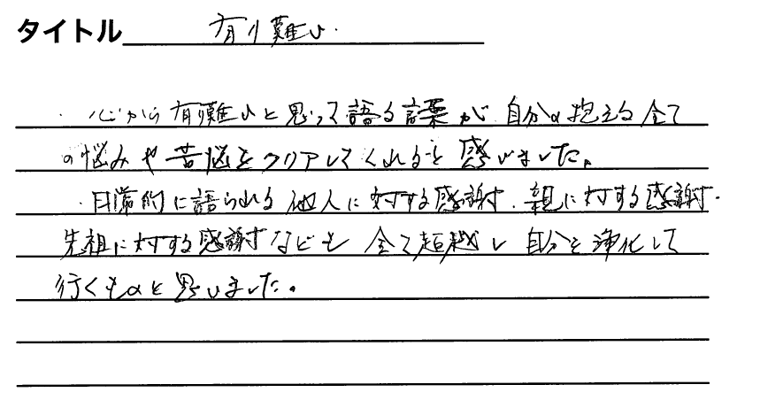 タイトル 有り難い.
・心から有難いと思って語る言葉が自分の抱える全て
の悩みや苦悩をクリアしてくれると感じました。
・日常的に語られる他人に対する感謝.親に対する感謝.
先祖に対する感謝なども全て超越し自分を浄化して
行くものと思いました。